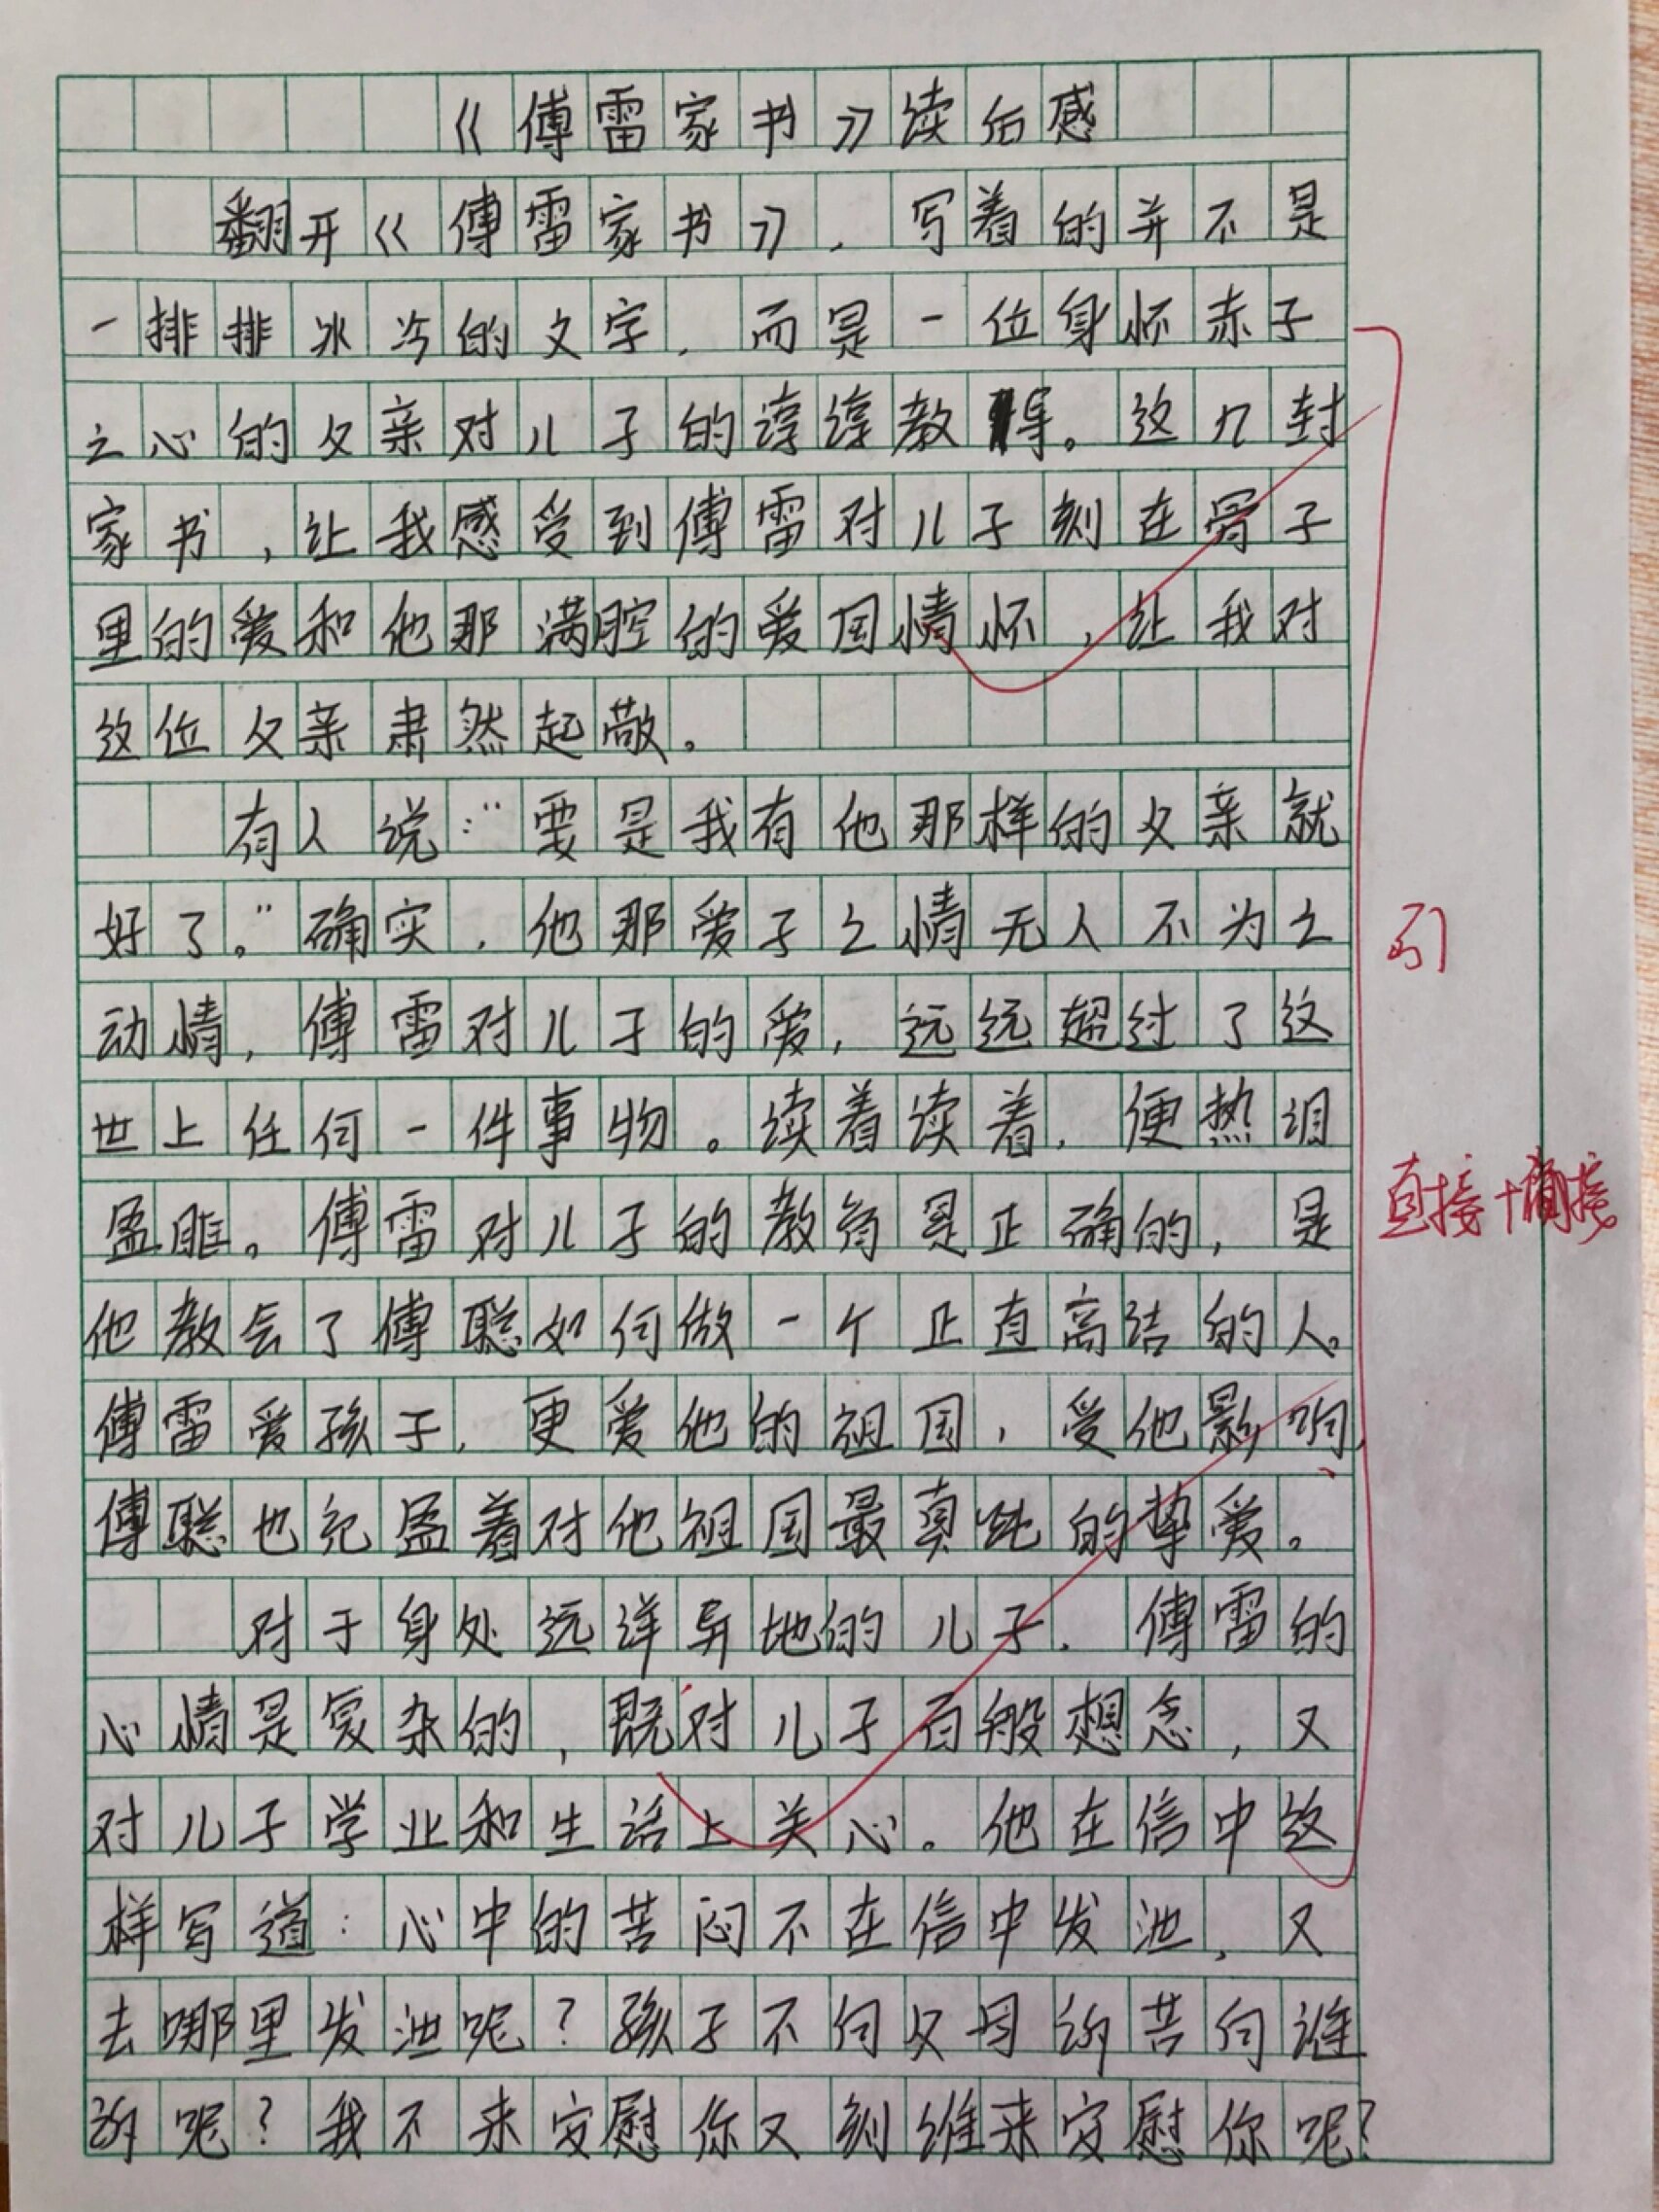 《傅雷家书》读后感
翻开《傅雷家书》，写着的并不是
一排排冰冷的文字，而是一位身怀赤子
之心的父亲对儿子的谆谆教导。这几封
家书，让我感受到傅雷对儿子刻在骨子
里的爱和他那满腔的爱国情怀，让我对
这位父亲肃然起敬。
有人说：“要是我有他那样的父亲就
好了。”确实，他那爱子之情无人不为之
动情，傅雷对儿子的爱，远远超过了这
世上任何一件事物。读着读着，便热泪
盈眶。傅雷对儿子的教育是正确的，是
他教会了傅聪如何做一个正直高洁的人。
傅雷爱孩子，更爱他的祖国，受他影响，
傅聪也充盈着对他祖国最真纯的挚爱。
对于身处远洋异地的儿子，傅雷的
心情是复杂的，既对儿子百般想念，又
对儿子学业和生活上关心。他在信中这
样写道：心中的苦闷不在信中发泄，又
去哪里发泄呢？孩子不向父母诉苦向谁
诉呢？我不来安慰你又到谁来安慰你呢？
引
直接+间接